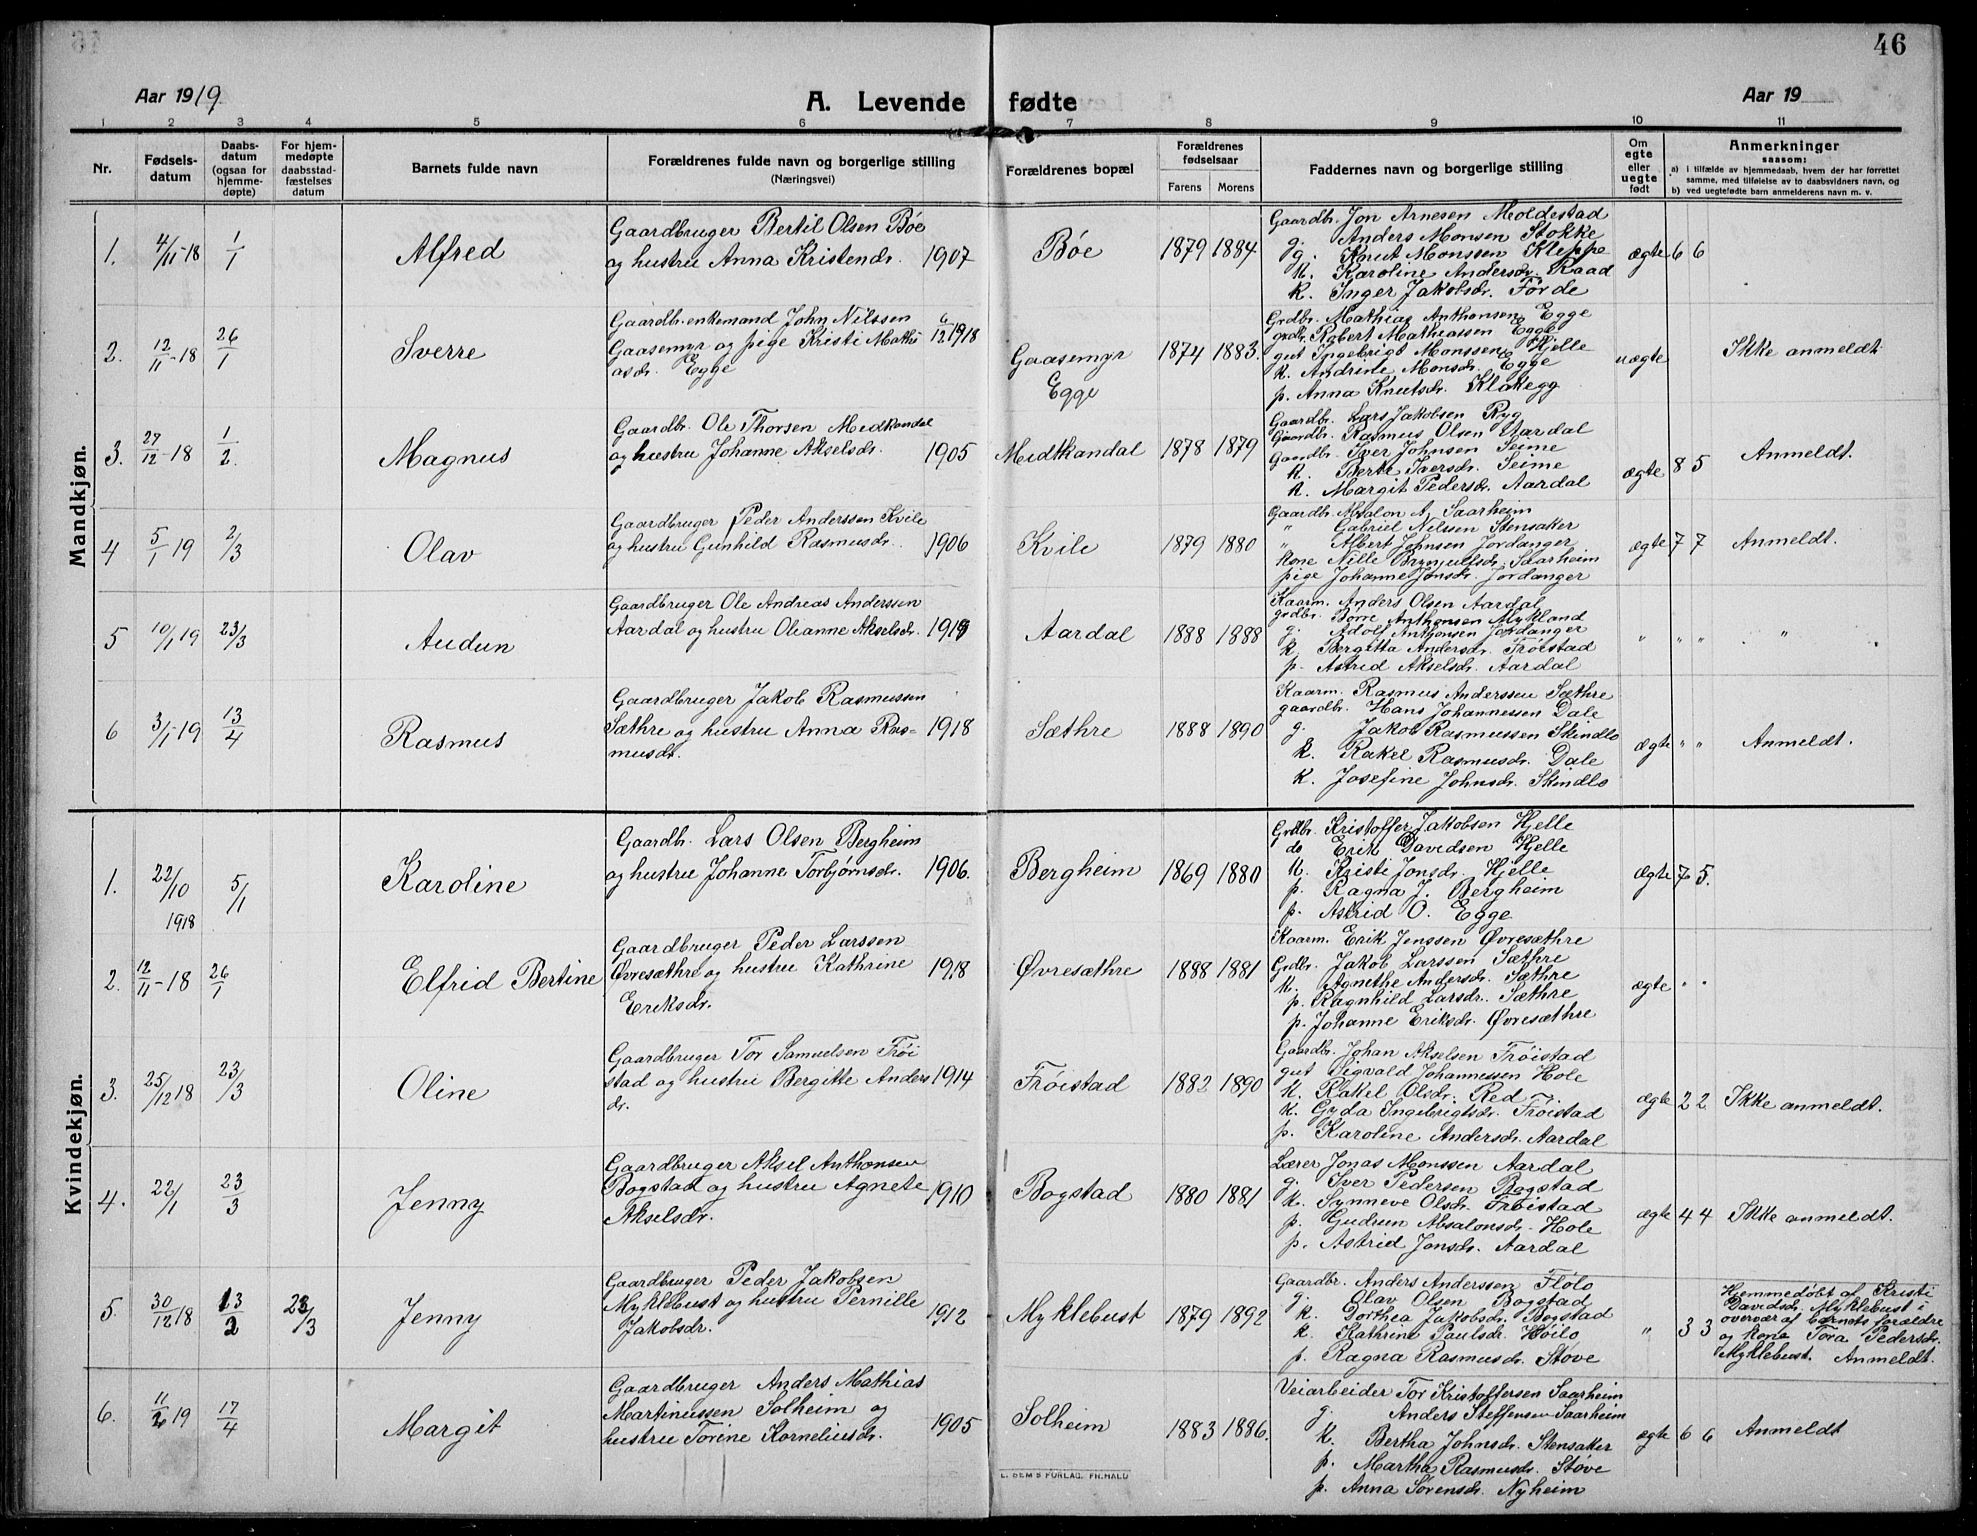 46
Aar 1919.
A. Levende fødte
Aar 19
1 2 3 4 5 6 7 8 9 10 11
Nr.
Fødsels-
datum
Daabs-
datum
(ogsaa for
hjemme-
døpte)
For hjem-
medøpte
daabsstad-
fæstelses
datum
Barnets fulde navn
Forældrenes fulde navn og borgerlige stilling
(Næringsvei)
Forældrenes bopæl
Forældrenes
fødselsaar
Farens Morens
Faddernes navn og borgerlige stilling
Om
egte
eller
uegte
født
Anmerkninger
saasom:
a) i tilfælde av hjemmedaab, hvem der har forrettet
samme, med tilføielse av to daabsvidners navn, og
b) ved uegtefødte barn anmelderens navn m. v.
Mandkjøn.
1. 4/11-18 1/1 Alfred
Gaardbruger Bertil Olsen Bøe
og hustru Anna Kristendr. 1907
Bøe 1879 1884
Gaardbr. Jon Arnesen Moldestad
g. Anders Monsen Stokke
g. Knut Monssen Kleppe
k. Karoline Andersdr. Raad
k. Inger Jakobsdr. Førde
ægte 6 6
2. 12/11-18 26/1 Sverre
Gaardbr. enkemand John Nilssen 6/12 1918
Gaasemyr og pige Kristi Mathi
asdr. Egge
Gaasemyr
Egge
1874 1883.
Grdbr. Mathias Anthonsen Egge
grdbr. Robert Mathiassen Egge
gut Ingebrigt Monssen Hjelle
k. Andrine Monsdr. Egge
p. Anna Knutsdr. Klakegg
uægte Ikke anmeldt
3. 29/12-18 1/2. Magnus
Gaardbr. Ole Thorsen Midtkandal
og hustru Johanne Akselsdr. 1905
Midtkandal 1878 1879
Gaardbr. Lars Jakobsen Ryg
Gaardbr. Rasmus Olsen Aardal
Gaardbr. Iver Johnsen Seime
k. Berte Iversdr. Seime
k. Margit Pedersdr. Aardal
ægte 8 5 Anmeldt.
4 5/1 19 2/3 Olav
Gaardbruger Peder Anderssen Kvile
og hustru Gunhild Rasmusdr. 1906
Kvile 1879 1880
Gaardbr. A. Saarheim
" Gabriel Nilssen Stensaker
" Albert Johnsen Jordanger
kone Nille Brynjulfsdr. Saarheim
pige Johanne Jonsdr. Jordanger
ægte 7 7 Anmeldt.
5 10/1 19 23/3 Audun
Gaardbruger Ole Andreas Anderssen
Aardal og hustru Olianne Akselsdr. 1918
Aardal 1888 1888
Kaarm. Anders Olsen Aardal
grdbr. Borre Anthonsen Mykland
g. Adolf Anthonsen Jordanger
k. Bergitta Andersdr. Frøistad
p. Astrid Akselsdr. Aardal
" " " "
6 3/1-19 13/4 Rasmus
Gaardbruger Jakob Rasmussen
Sæthre og hustru Anna Ras- 1918
musdr.
Sæthre 1888 1890
Kaarm. Rasmus Anderssen Sæthre
gaardbr. Hans Johannessen Dale
g. Jakob Rasmussen Skindlo
k. Rakel Rasmusdr. Dale
k. Josefine Johnsdr. Skindlo
ægte " " Anmeldt.
Kvindekjøn.
1. 22/10 1918 5/1 Karoline
Gaardb. Lars Olsen Bergheim
og hustru Johanne Torbjørnsdr. 1906.
Bergheim 1869 1880
Grdbr. Kristoffer Jakobsen Hjelle
do Erik Davidsen Hjelle
k. Kristi Jonsdr. Hjelle
p. Ragna J. Bergheim
p. Astrid O. Egge
ægte 7 5.
2. 12/11-18 26/1 Elfrid Bertine
Gaardbruger Peder Larssen
Øvresæthre og hustru Kathrine 1918
Eriksdr.
Øvresæthre 1888 1881
Kaarm. Erik Jenssen Øvresæthre
Grdbr. Jakob Larssen Sæthre
k. Agnethe Andersdr. Sæthre
p. Ragnhild Larsdr. Sæthre
p. Johanne Eriksdr. Øvresæthre
ægte " "
3. 25/12 18 23/3 Oline
Gaardbruger Tor Samuelsen Frøi
stad og hustru Bergitte Anders 1914
dr.
Frøistad 1882 1890
Gaardbr. Johan Akselsen Frøistad
gut Sigvald Johannessen Hole
k. Rakel Olsdr. Red
k. Gyda Ingebrigtsdr. Frøistad
p. Karoline Andersdr. Aardal
ægte 2 2 Ikke anmeldt.
4. 22/1 23/3 Jenny
Gaardbruger Aksel Anthonsen
Bogstad og hustru Agnete 1910
Akselsdr.
Bogstad 1880 1881
Lærer Jonas Monssen Aardal
g. Iver Pedersen Bogstad
k. Synneve Olsdr. Frøistad
p. Gudrun Absalonsdr. Hole
p. Astrid Jonsdr. Aardal
ægte 4 4 Ikke anmeldt.
5. 30/12 18 13/2 23/3 Jenny
Gaardbruger Peder Jakobsen
Myklebust og hustru Pernille 1912
Jakobsdr.
Myklebust 1879 1892
Gaardbr. Anders Anderssen Flølo
g. Olav Olsen Bogstad
k. Dorthea Jakobsdr. Bogstad
k. Kathrine Paulsdr. Høilo
p. Ragna Rasmusdr. Støve
" 3 3
Hjemmedøbt af Kristi
Davidsdr. Myklebust i
overvær af barnets forældre
og kone Tora Pedersdr.
Myklebust. Anmeldt.
6. 11/2 19 17/4 Margit
Gaardbruger Anders Mathias
Martinussen Solheim og
hustru Torine Korneliusdr. 1905
Solheim 1883 1886.
Veiarbeider Tor Kristoffersen Saarheim
g. Anders Steffensen Saarheim
k. Bertha Johnsdr. Stensaker
p. Martha Rasmusdr. Støve
p. Anna Sørensdr. Nyheim
ægte 6 6 Anmeldt